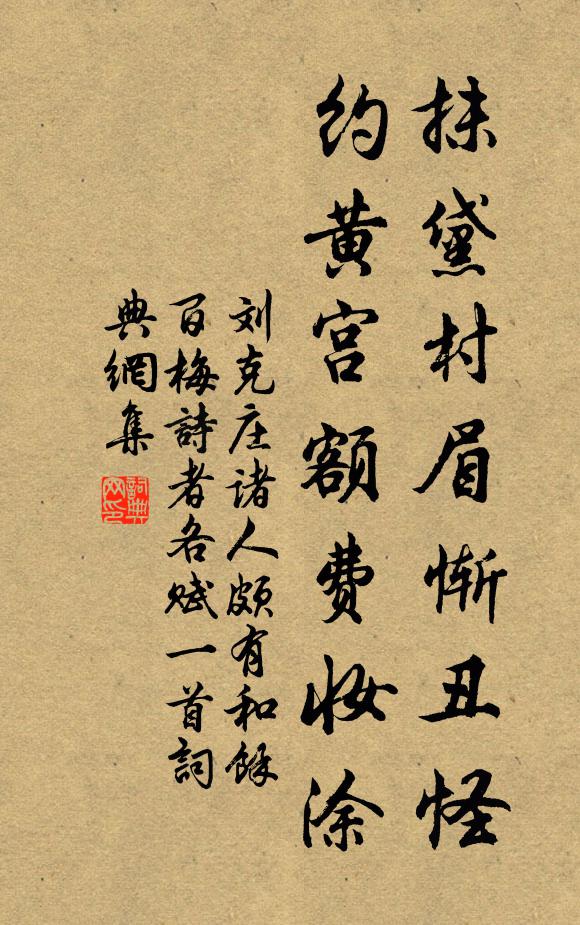 抹黛村眉惭丑怪
约黄宫额费妆涂
刘克庄诸人颇有和馀
百梅詩者各赋一首詞
典網集
詞典
网印